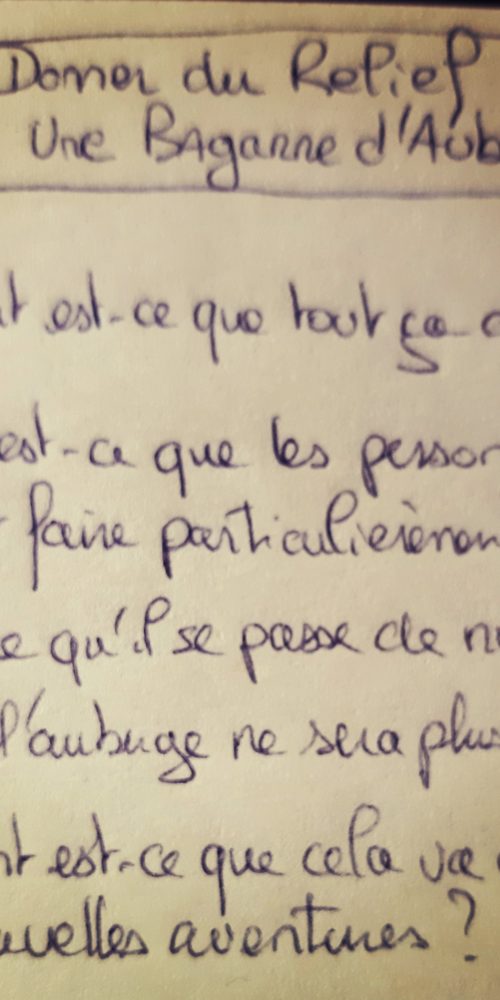 Donner du Relief
Une Baganne d'Aub
t est-ce que tout ça c
est-ce que les person
faire particulièremen
e qu'il se passe de n
l'auberge ne sera plus
nt est-ce que cela va
uvelles aventures ?